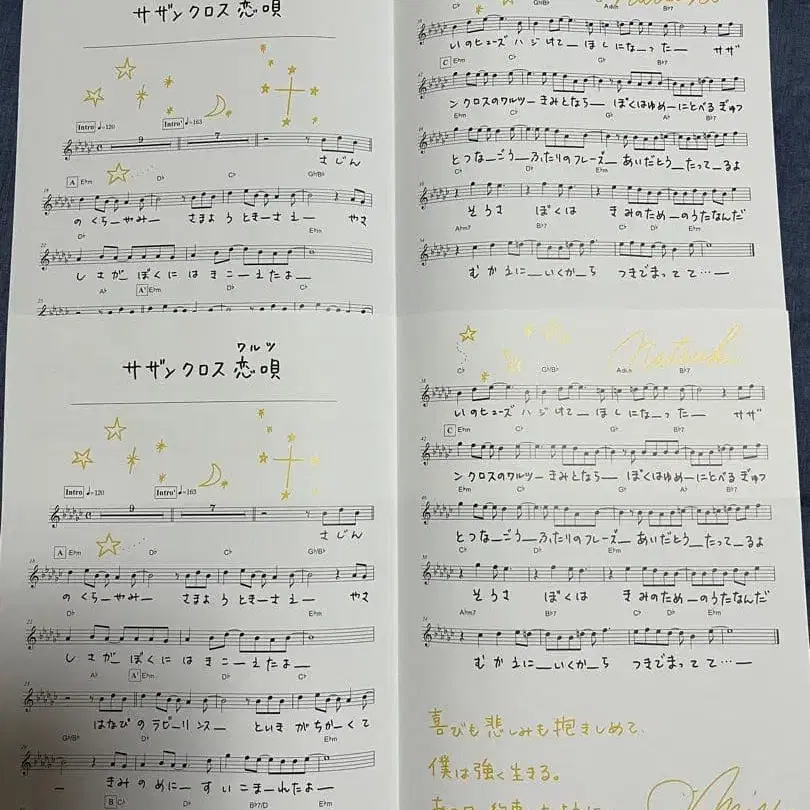 サザンクロス 恋唄
Intro ♩=120 Intro' ♩=163
9 7
さじん
A E♭m D♭ C♭ G♭/B♭
のくらーやみー さまよ うときーさえー やさ
D♭ E♭m
しさが ぼくには きこーえたよー
A♭ A' E♭m D♭ C♭
C♭ G♭/B♭ Adim B♭7
いのヒューズ ハジけてー ほしになーったー サザ
C E♭m C♭ G♭ B♭7
ンクロスのワルツー きみとならー ぼくはゆめーにとべる ぎゅっ
E♭m C♭ G♭ A♭ B♭7
とつなーごうー ふたりのフレーズー あいだとうーたってーるよ
C♭ D♭ E♭m
そうさ ぼくは きみのためーのうたなんだ
A♭m7 B♭7 C♭ D♭ E♭m
むかえにーいくかーら つきでまってて…ー
ワルツ
サザンクロス 恋唄
Intro ♩=120 Intro' ♩=163
9 7
さじん
A E♭m D♭ C♭ G♭/B♭
のくらーやみー さまよ うときーさえー やさ
D♭ E♭m
しさが ぼくには きこーえたよー
A♭ A' E♭m D♭ C♭
はなびのラビーリンスー といき がちかーくて
G♭/B♭ D♭ E♭m
ー きみのめにー すいこまーれたよー
B C♭ D♭ B♭7/D E♭m
Natsuki
C♭ G♭/B♭ Adim B♭7
いのヒューズ ハジけてー ほしになーったー サザ
C E♭m C♭ G♭ B♭7
ンクロスのワルツー きみとならー ぼくはゆめーにとべる ぎゅっ
E♭m C♭ G♭ A♭ B♭7
とつなーごうー ふたりのフレーズー あいだとうーたってーるよ
C♭ D♭ E♭m
そうさ ぼくは きみのためーのうたなんだ
A♭m7 B♭7 C♭ D♭ E♭m
むかえにーいくかーら つきでまってて…ー
喜びも悲しみも抱きしめて、
僕は強く生きる。